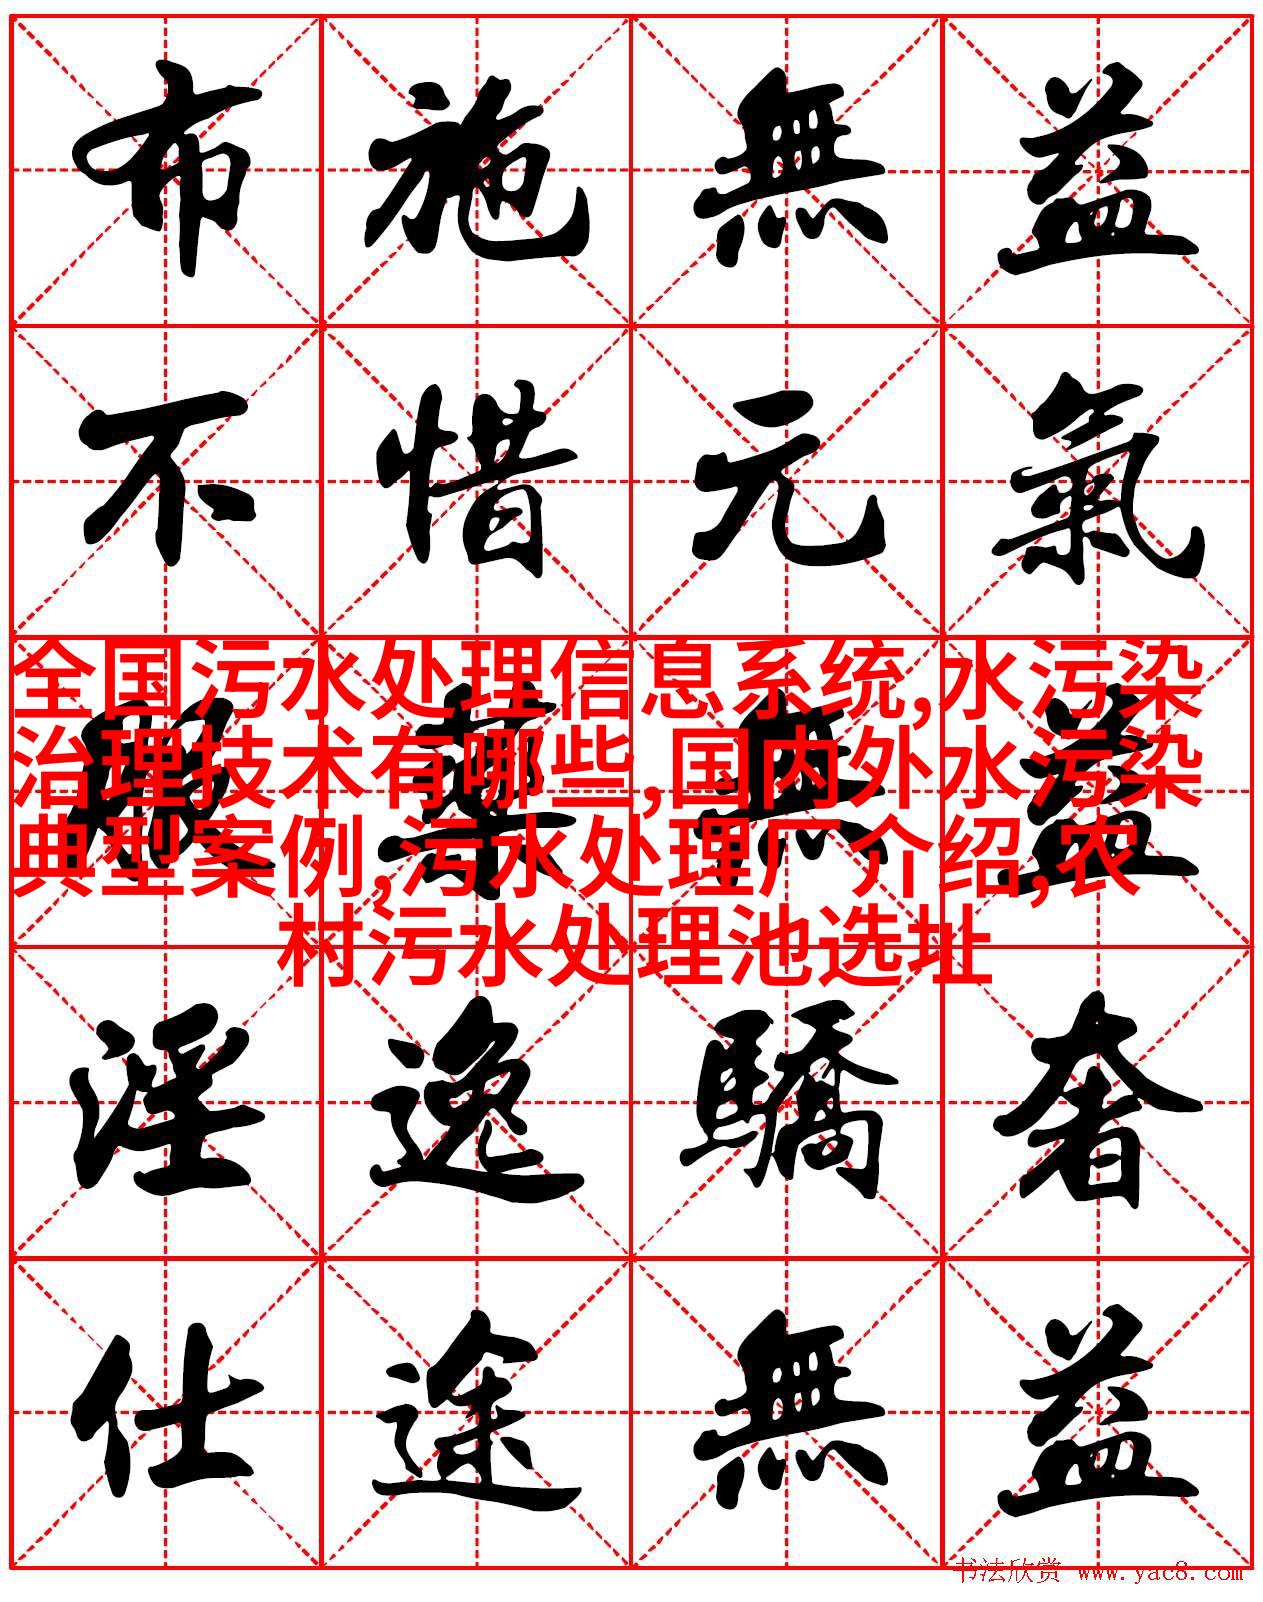 布施無益
不惜元氣
服藥無益
全国污水处理信息系统,水污染
治理技术有哪些,国内外水污染
典型案例,污水处理厂介绍,农
村污水处理池选址
淫逸驕奢
仕途無益
书法欣赏 www.yac8.com